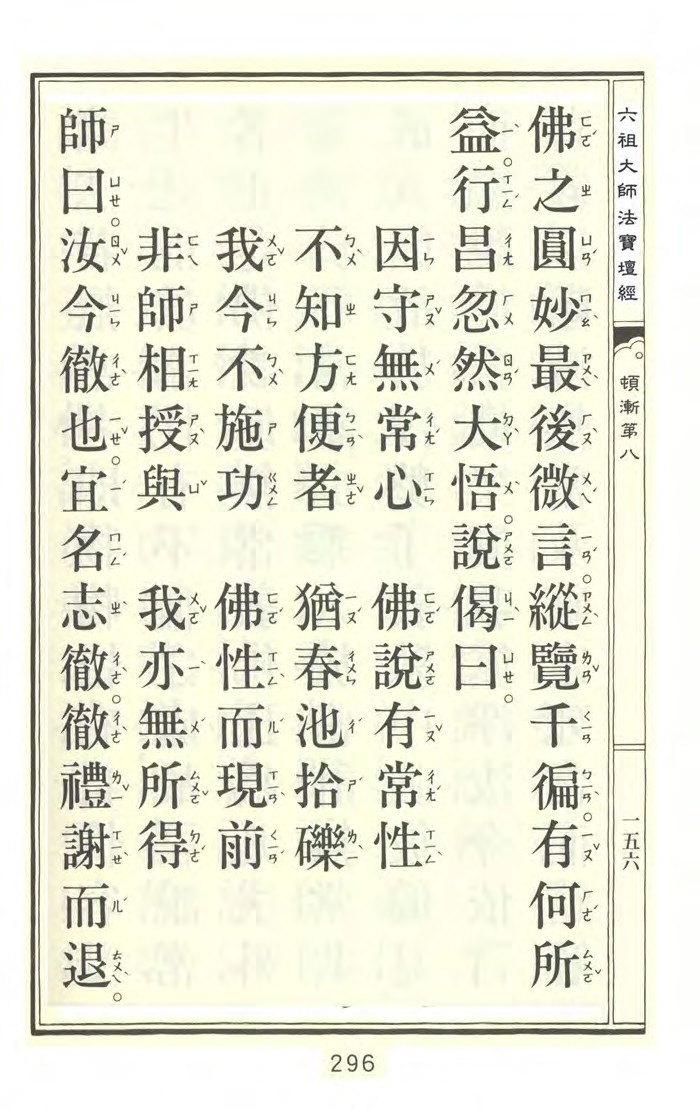 六祖大師法寶壇經 頓漸第八 一五六
佛之圓妙最後微言。縱覽千徧。有何所
益。行昌忽然大悟。說偈曰。
因守無常心 佛說有常性
不知方便者 猶春池拾礫
我今不施功 佛性而現前
非師相授與 我亦無所得
師曰。汝今徹也。宜名志徹。徹禮謝而退。
296